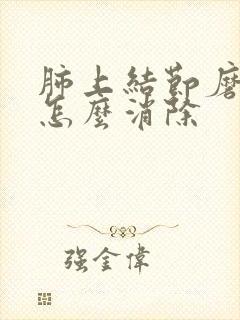 肺上結節磨
怎麼消除
强金偉